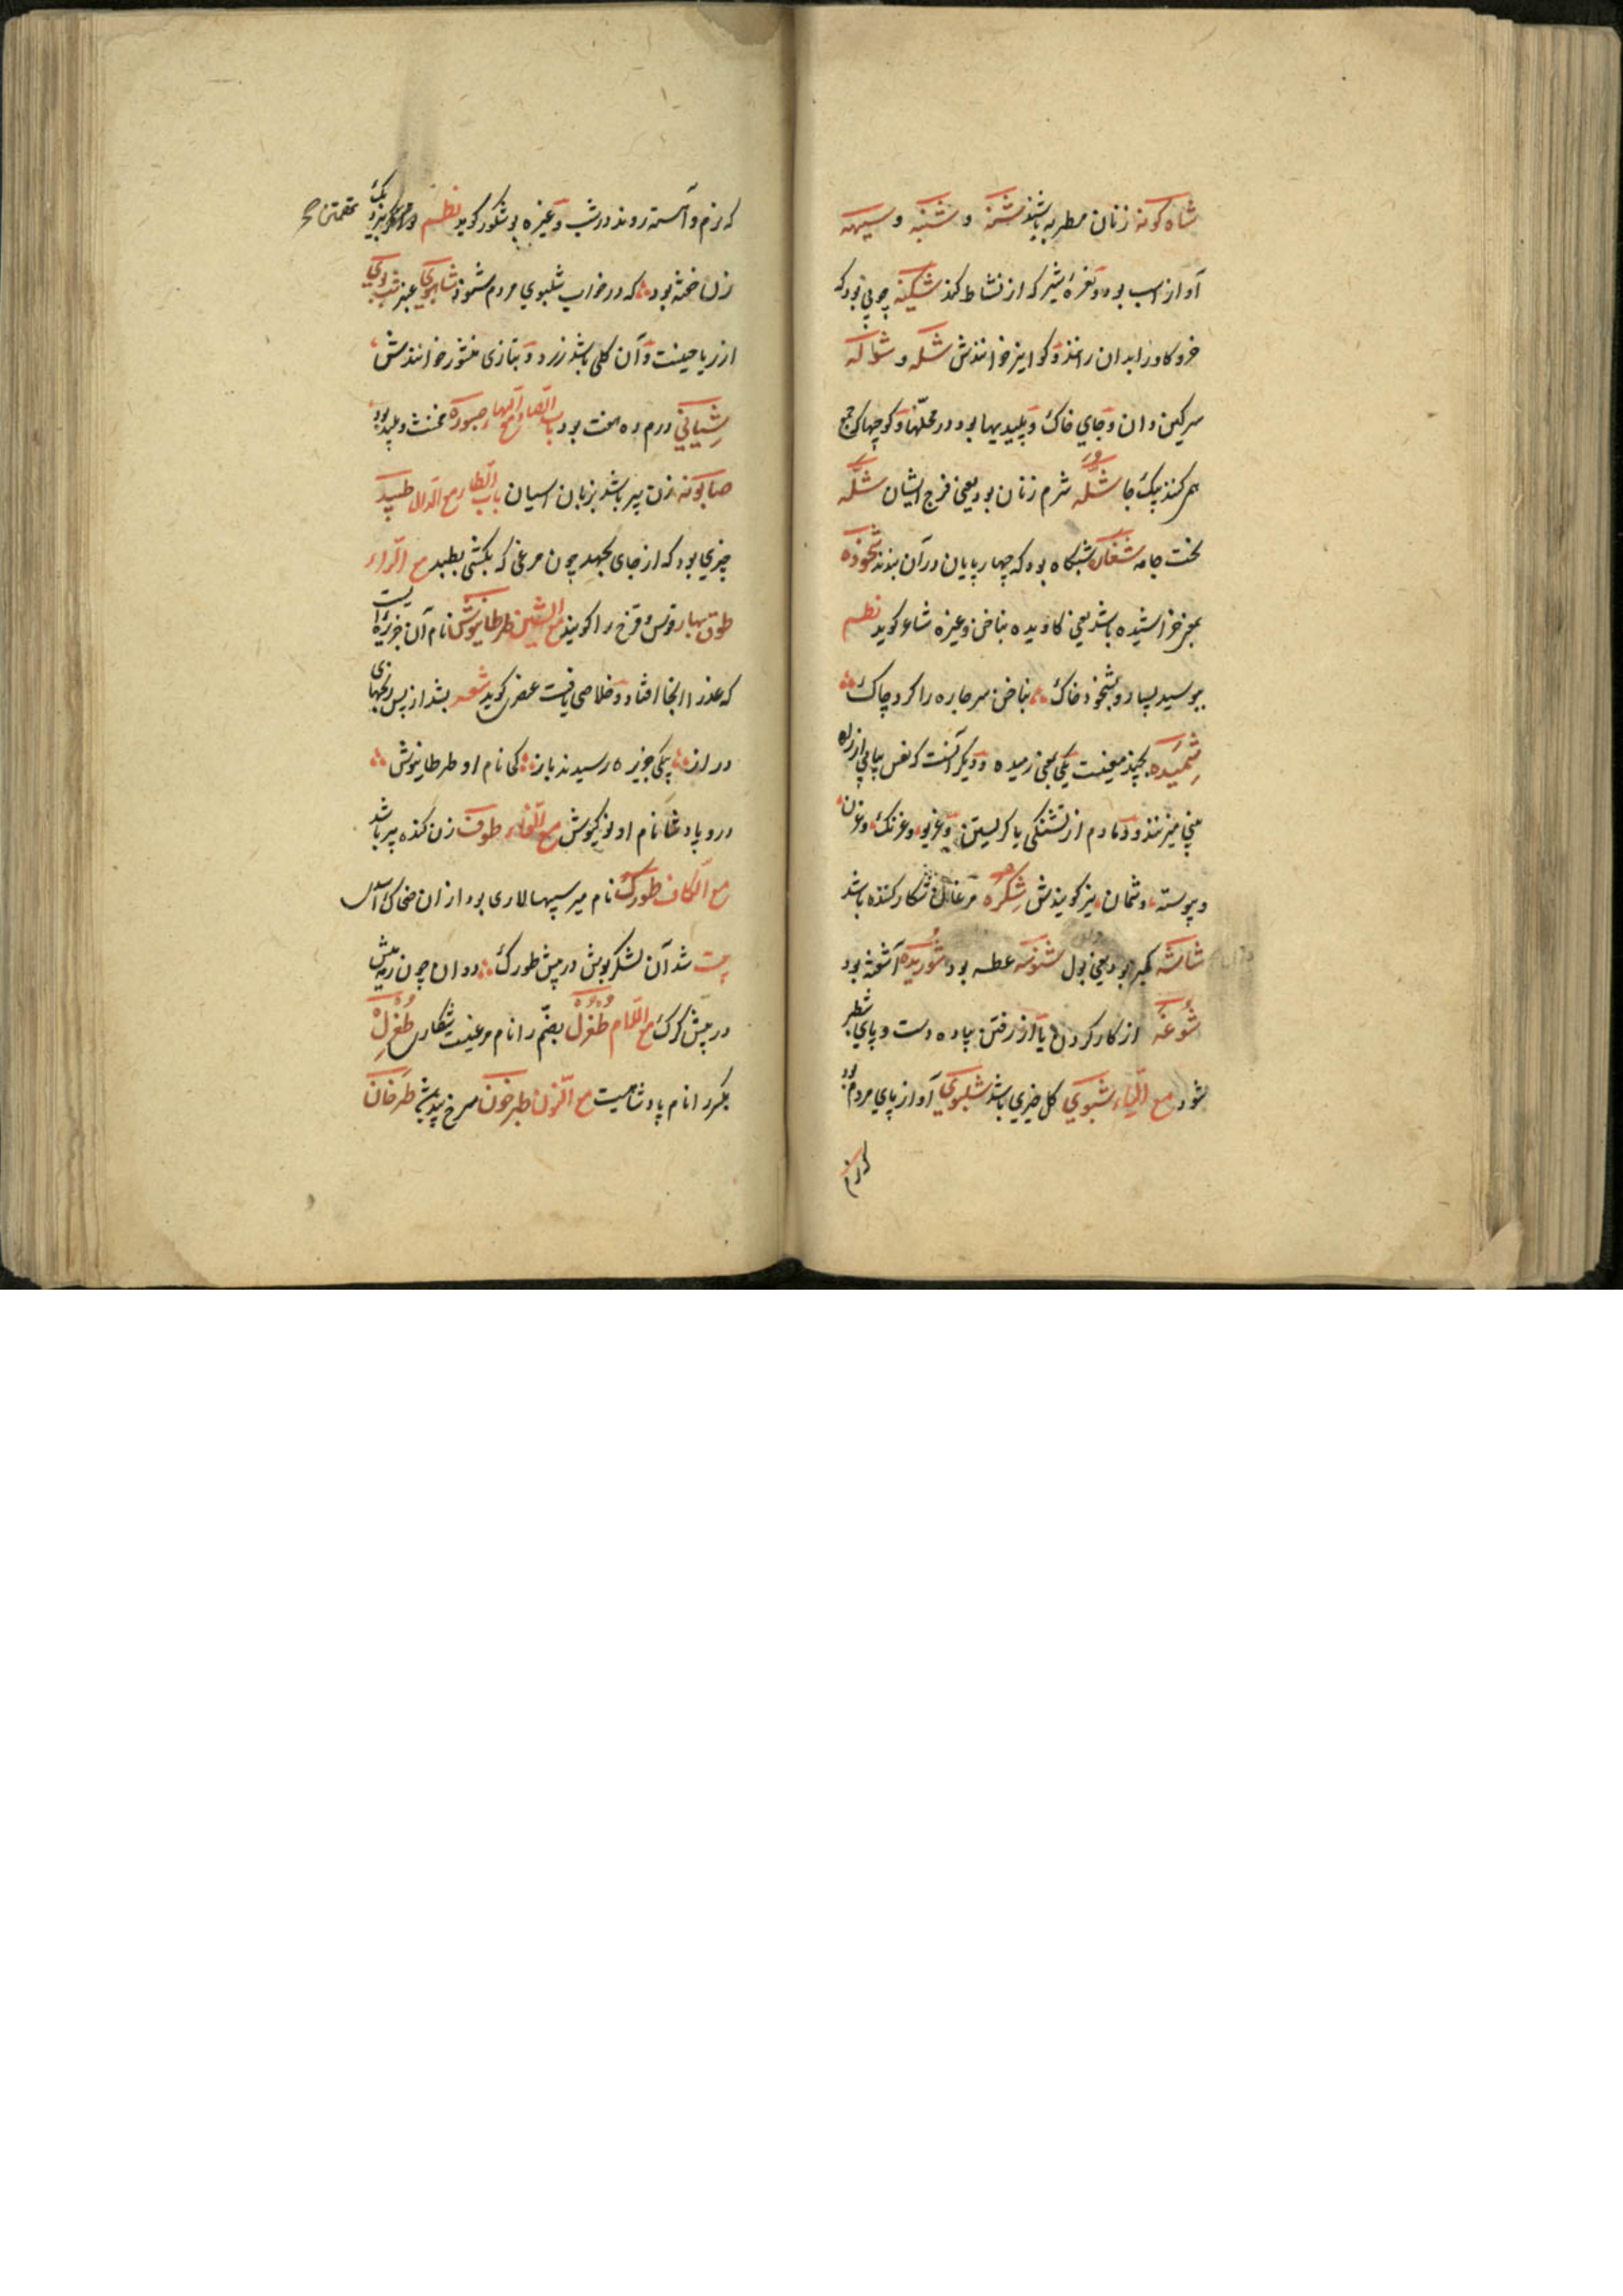 شاه کونه زنان مطربه باشند شنه و شنبه و سیهه
آواز اسب بود و نعرهٔ شیر که از نشاط کند شکینه چوبی بود که
خر و کاو را بدان رانند و کواز نیز خوانندش شکه و شواکه
سرکین دان و جای خاک و پلیدیها بود در محلتها و کوچها که جمع
هم کنند بیک جا شله شرم زنان بود یعنی فرج ایشان شله
لخت جامه شغاک شبکاه بود که چهار پایان در آن بندند شخوده
بمعنی خراشیده باشد یعنی کاویده بناخن و غیره شاعر کوید نظم
ببوسید بسیار و بشخود خاک بناخن سر جاره را کرد چاک
شمیده بچند معنیست یکی بمعنی رمیده و دیکر آنست که نفس پیاپی از راه
بینی میزنند و دمادم از تشنکی یا کریستن و غریو و غرنک و غرن
و پیوسته و شمان نیز کویندش شکره مرغان شکار کننده باشد
شاشه کمیز بود یعنی بول شنوشه عطسه بود شوریده آشفته بود
شوغه از کار کردن یا از رفتن پیاده دست و پای سطبر
شود مع الیاء شبوی کل خیری باشد شلپوی آواز پای مردم بود
که نرم
که نرم و آهسته روند در شب و غیره بوشکور کوید نظم
زن خفته بود که در خواب شلپوی مردم شنود شاهبوی عنبر شب بوی
از ریاحینست و آن کلی باشد زرد و بتازی منثور خوانندش
شیانی درم ده هفت بود باب الصاد مع الهاء صبوره مخنث و پلید بود
صابوته زن پیر باشد بزبان اسیان باب الطاء مع الدال طپید
چیزی بود که از جای بجهد چون مرغی که بکشی بطپد مع الراء
طوق بهار قوس و قزح را کویند مع الشین طرطانیوش نام آن جزیره است
که عذرا آنجا افتاد و خلاصی یافت عنصری کوید شعر بشد از پس رنجهای
دراز بیکی جزیره رسیدند باز کی نام او طرطانیوش
درو پادشا نام اوفرنکیوش مع الفاء طوف زن کنده پیر باشد
مع الکاف طورک نام میر سپهسالاری بود از آن ضحاک اسدی
بیت شد آن لشکر بوش در پیش طورک دوان چون رمیش
در پیش کرک مع اللام طغرل بضم را نام مرغیست شکاری طغرل
بکسر را نام پادشاهیست مع النون طرخون سرخ بید باشد طرخان